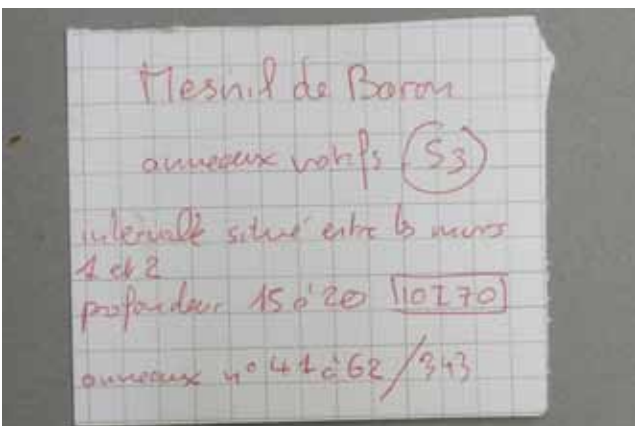 Mesnil de Baron
anneaux votifs S3
intervalle situé entre les murs
1 et 2
profondeur 15 à 20 10I70
anneaux n° 41 à 62/343